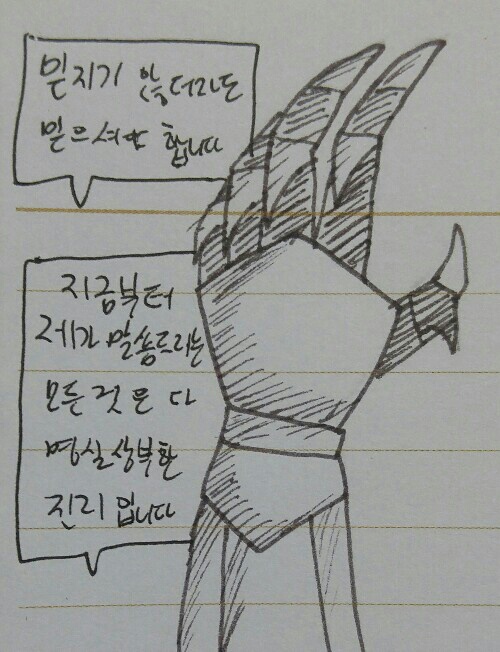 믿지기 않더라도
믿으셔야 합니다
지금부터
제가 말씀드리는
모든 것은 다
명실상부한
진리입니다